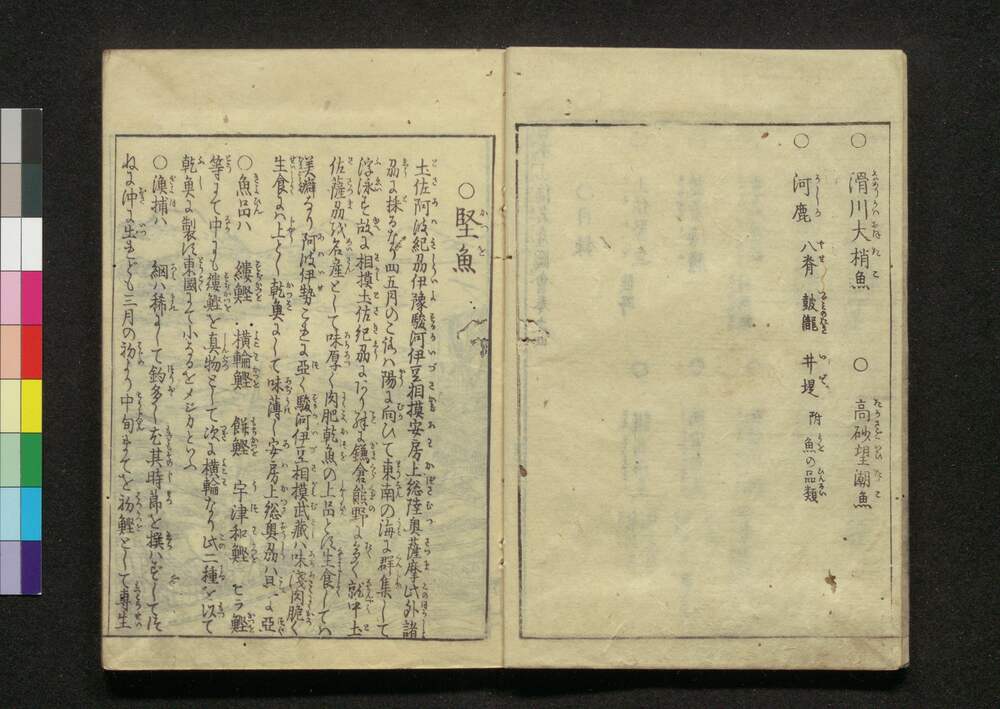 ○滑川大梢魚　○高砂望潮魚
○河鹿　八脊　皷瀧　井堤　附　魚の品類
○堅魚
土佐阿波紀刕伊豫駿河伊豆相摸安房上総陸奥薩摩此外諸
刕に採るなり四五月のころハ陽に向ひて東南の海に群集して
浮泳す故に相摸土佐紀刕にあり殊に鎌倉熊野に多く就中土
佐薩刕を名産として味厚く肉肥乾魚の上品とす生食してハ
美癖なり阿波伊勢これに亜く駿河伊豆相摸武蔵ハ味浅肉脆く
生食にハ上とし乾魚にして味薄し安房上総奥刕ハ是に亜
○魚品ハ　縷鰹・横輪鰹　餅鰹　宇津和鰹　ヒラ鰹
等にて中にも縷鰹を真物として次に横輪なり此二種を以て
乾魚に製す東國にて小なるをメジカといふ
○漁捕ハ　網ハ稀にして釣多し尤其時節を撰ハずしてつ
ねに沖に出れども三月の初より中旬まてを初鰹として専生